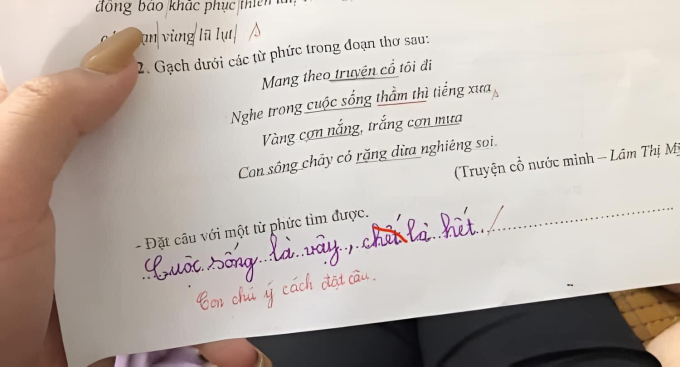 đồng bào khắc phục thiên
vùng lũ lụt
2. Gạch dưới các từ phức trong đoạn thơ sau:
Mang theo truyện cổ tôi đi
Nghe trong cuộc sống thầm thì tiếng xưa
Vàng cơn nắng, trắng cơn mưa
Con sông chảy có rặng dừa nghiêng soi.
(Truyện cổ nước mình – Lâm Thị Mỹ
- Đặt câu với một từ phức tìm được.
Cuộc sống là vậy, chết là hết!
Con chú ý cách đặt câu.